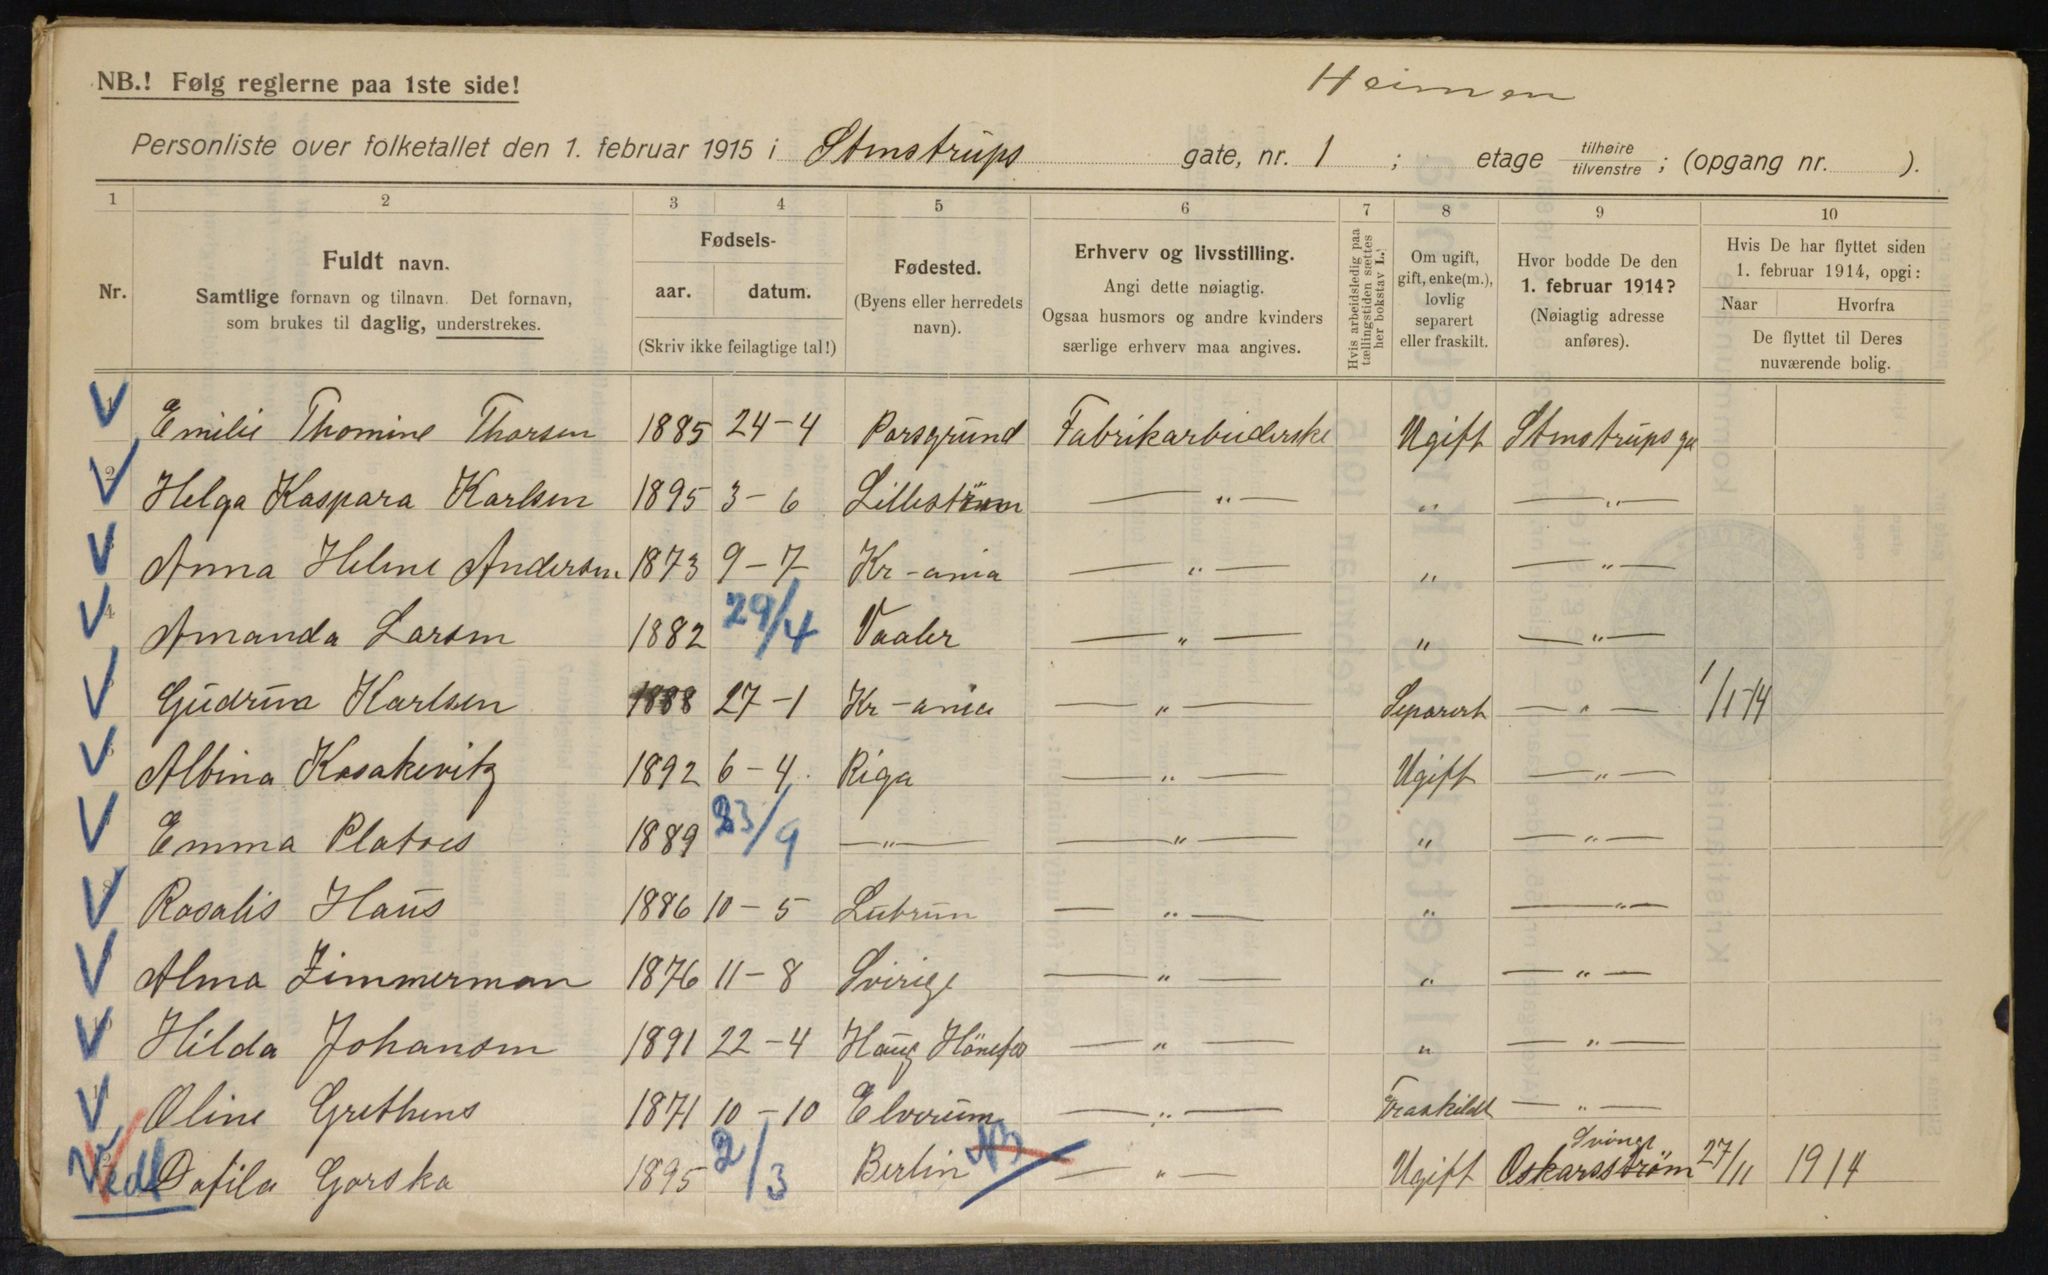 Heimen
NB.! Følg reglerne paa 1ste side!
Personliste over folketallet den 1. februar 1915 i Stenstrups gate, nr. 1 ; etage tilhøire tilvenstre ; (opgang nr. ).
1 2 3 4 5 6 7 8 9 10
Nr.
Fuldt navn.
Samtlige fornavn og tilnavn. Det fornavn,
som brukes til daglig, understrekes.
Fødsels-
aar. datum.
(Skriv ikke feilagtige tal!)
Fødested.
(Byens eller herredets
navn).
Erhverv og livsstilling.
Angi dette nøiagtig.
Ogsaa husmors og andre kvinders
særlige erhverv maa angives.
Hvis arbeidsledig paa
tællingstiden sættes
her bokstav L.
Om ugift,
gift, enke(m.),
lovlig
separert
eller fraskilt.
Hvor bodde De den
1. februar 1914?
(Nøiagtig adresse
anføres).
Hvis De har flyttet siden
1. februar 1914, opgi:
Naar Hvorfra
De flyttet til Deres
nuværende bolig.
1 Emilie Thomine Thorsen 1885 24-4 Porsgrund Fabrikarbeiderske Ugift Stenstrups ga
2 Helga Kaspara Karlsen 1895 3-6 Lillestrøm —„— „ —„—
3 Anna Helene Andersen 1873 9-7 Kr-ania —„— „ —„—
4 Amanda Larsen 1882 29/4 Vaaler —„— „ —„—
5 Gudrun Karlsen 1888 27-1 Kr-ania —„— Separert —„— 1/1-14
6 Albina Kosakevitz 1892 6-4 Riga —„— Ugift —„—
7 Emma Platoes 1889 23/9 —„— —„— „ —„—
8 Rosalis Haus 1886 10-5 Lubrun —„— „ —„—
9 Alma Zimmerman 1876 11-8 Sverige —„— „ —„—
10 Hilda Johansen 1891 22-4 Haug Hönefos —„— „ —„—
11 Oline Grethens 1871 10-10 Elverum —„— Fraskildt —„—
Sverige
12 Dofila Gorska 1895 2/3 Berlin —„— Ugift Oskarsström 27/11 1914
Vedl